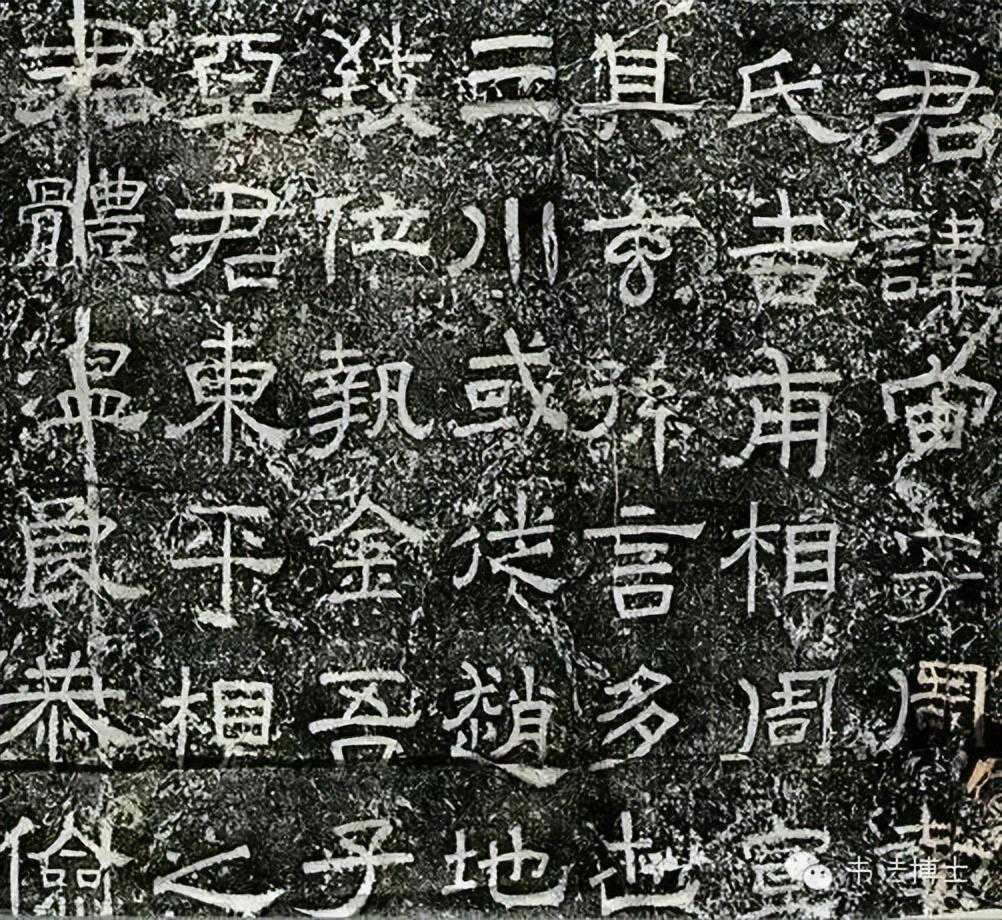 君諱宙字周南
氏吉甫相周宣
其玄孫言多世
三川或徙趙地
致位執金吾子
亞君東平相之
君體溫良恭儉
书法博士